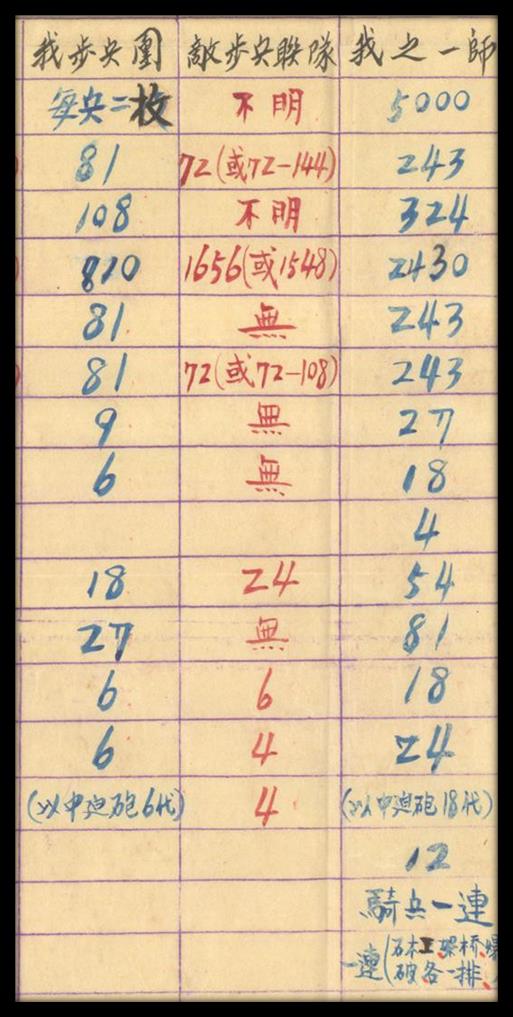 我步兵團 敵步兵聯隊 我之一師
每兵二枚 不明 5000
81 72(或72-144) 243
108 不明 324
810 1656(或1548) 2430
81 無 243
81 72(或72-108) 243
9 無 27
6 無 18
4
18 24 54
27 無 81
6 6 18
6 4 24
(以中迫砲6代) 4 (以中迫砲18代)
12
騎兵一連
一連(石木工、架桥、爆
破各一排、